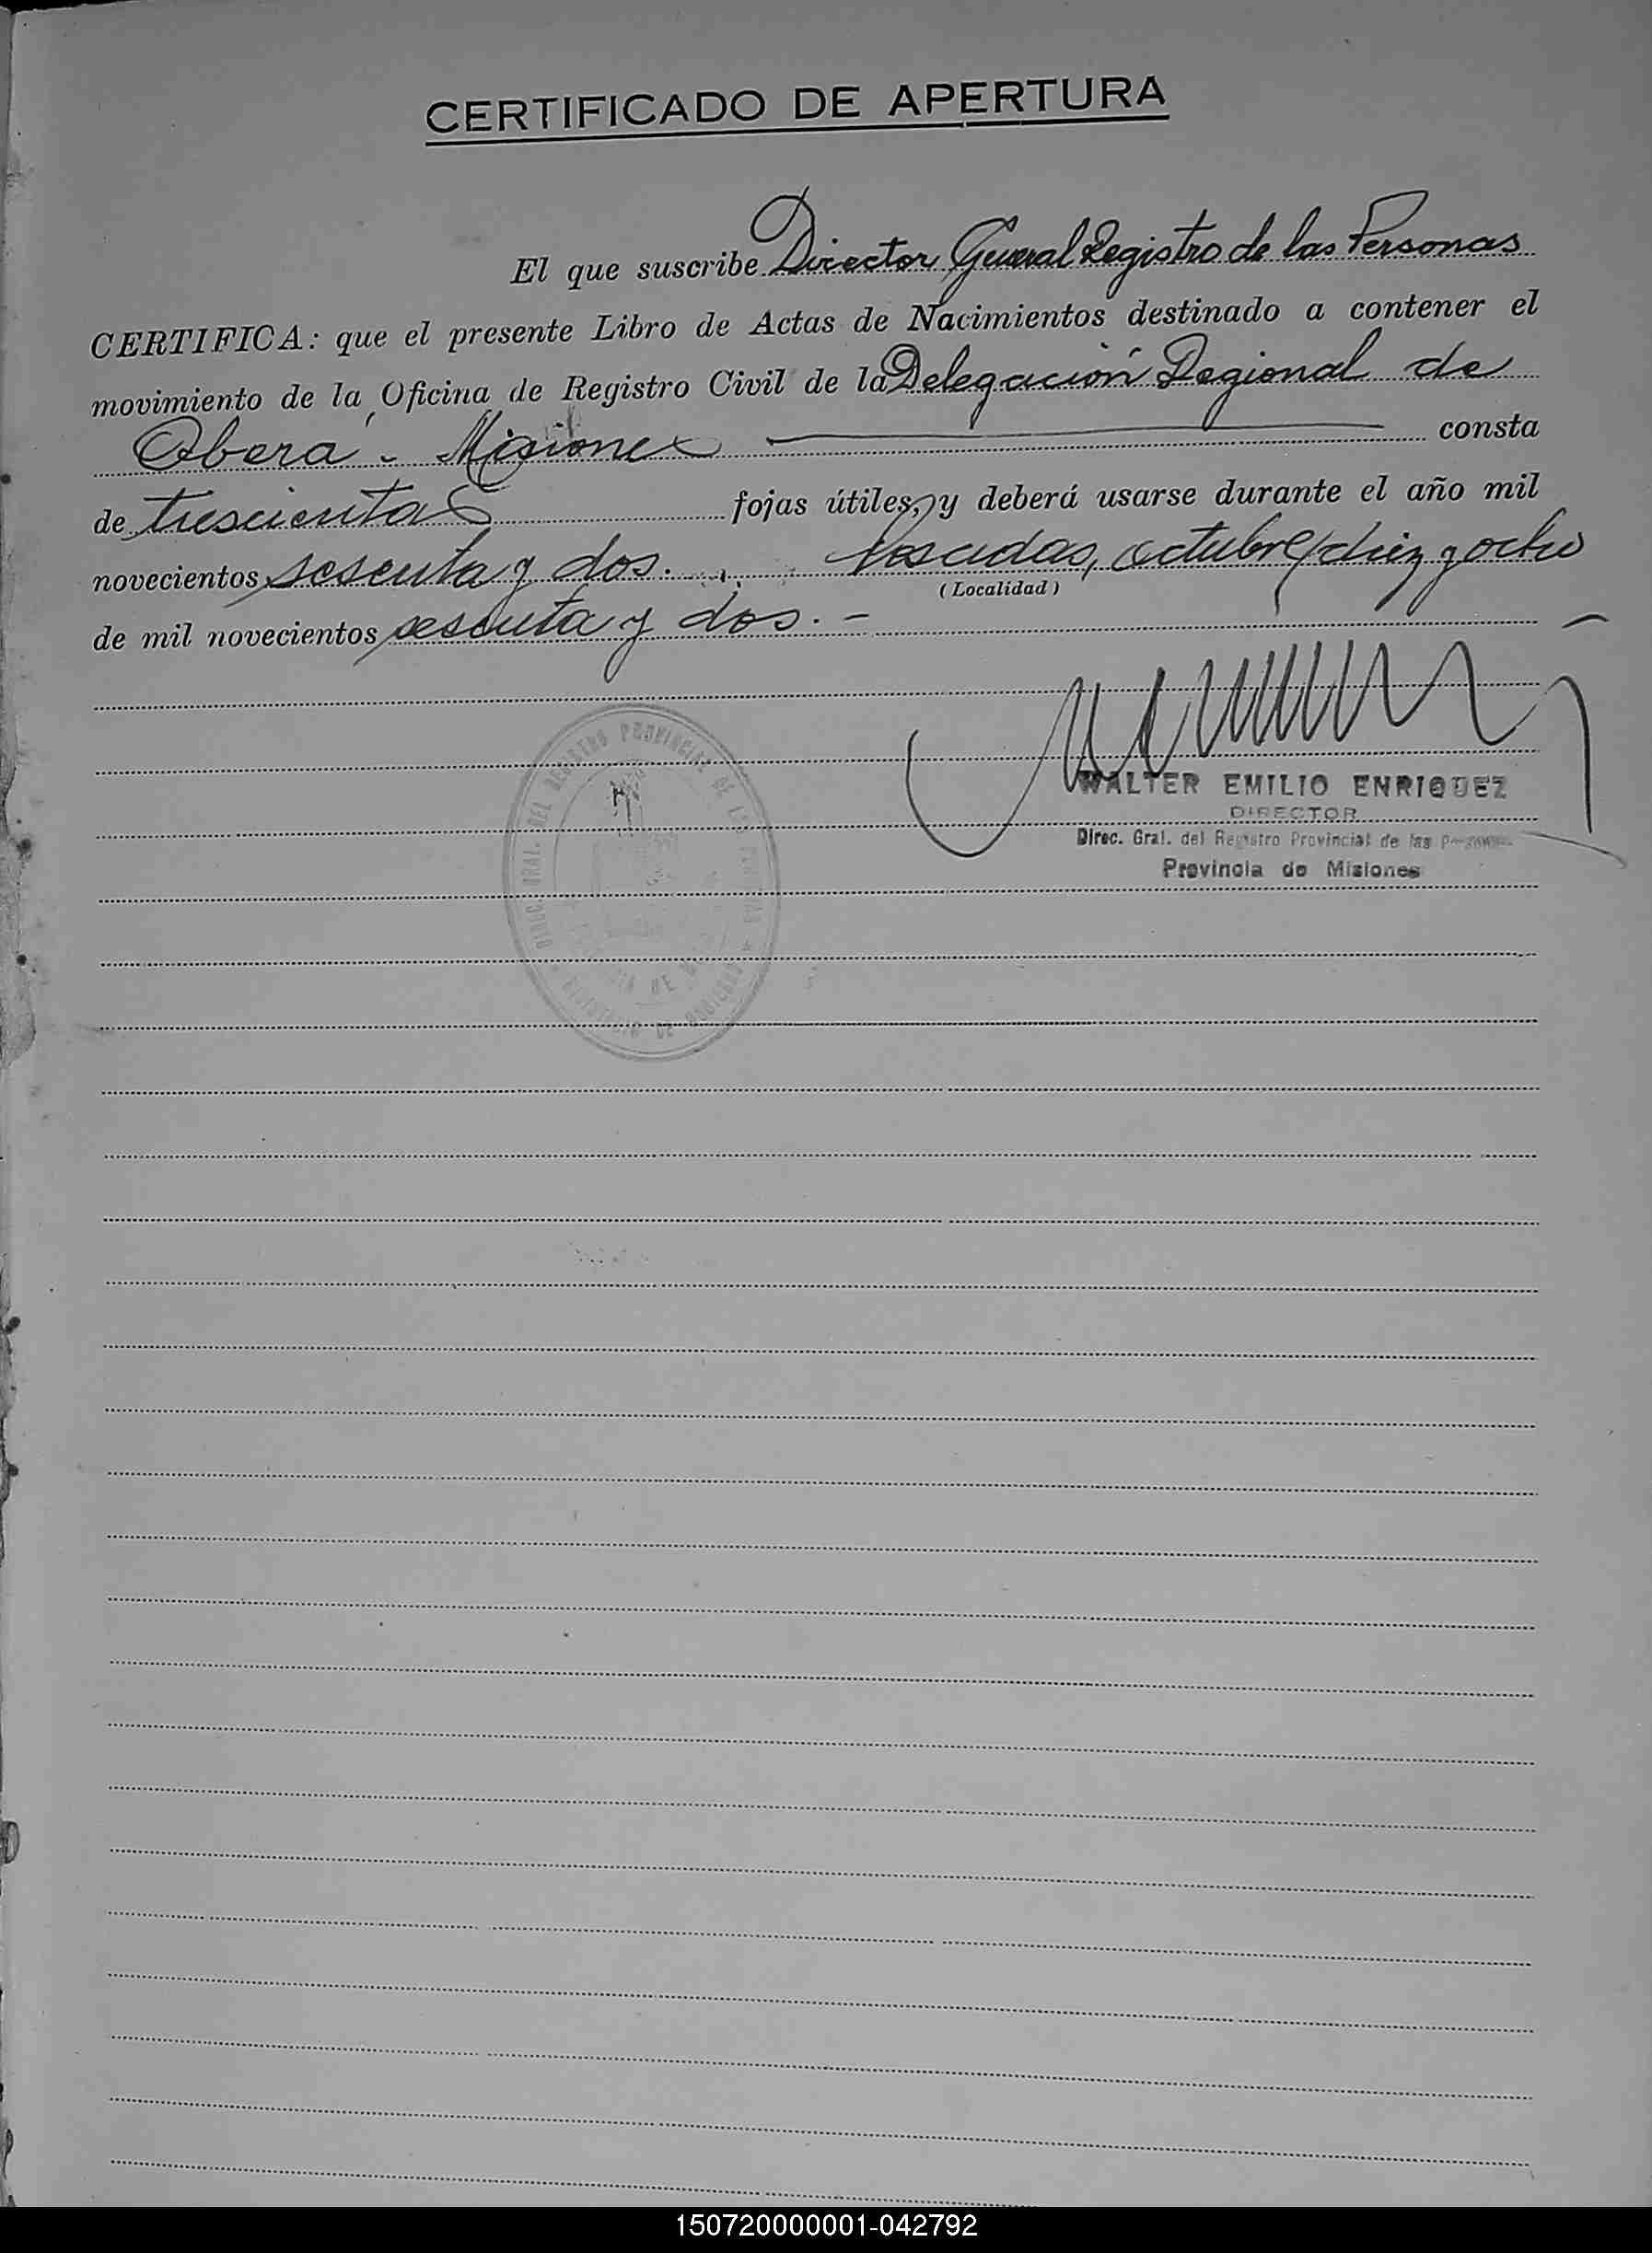 CERTIFICADO DE APERTURA
El que suscribe Director General Registro de las Personas
CERTIFICA: que el presente Libro de Actas de Nacimientos destinado a contener el
movimiento de la Oficina de Registro Civil de la Delegación Regional de
Oberá - Misiones consta
de trescientas fojas útiles, y deberá usarse durante el año mil
novecientos sesenta y dos. Posadas, octubre diez y ocho
(Localidad)
de mil novecientos sesenta y dos. -
WALTER EMILIO ENRIQUEZ
DIRECTOR
Direc. Gral. del Registro Provincial de las
Provincia de Misiones
DIREC. GRAL. DEL REGISTRO PROVINCIAL DE LAS
150720000001-042792